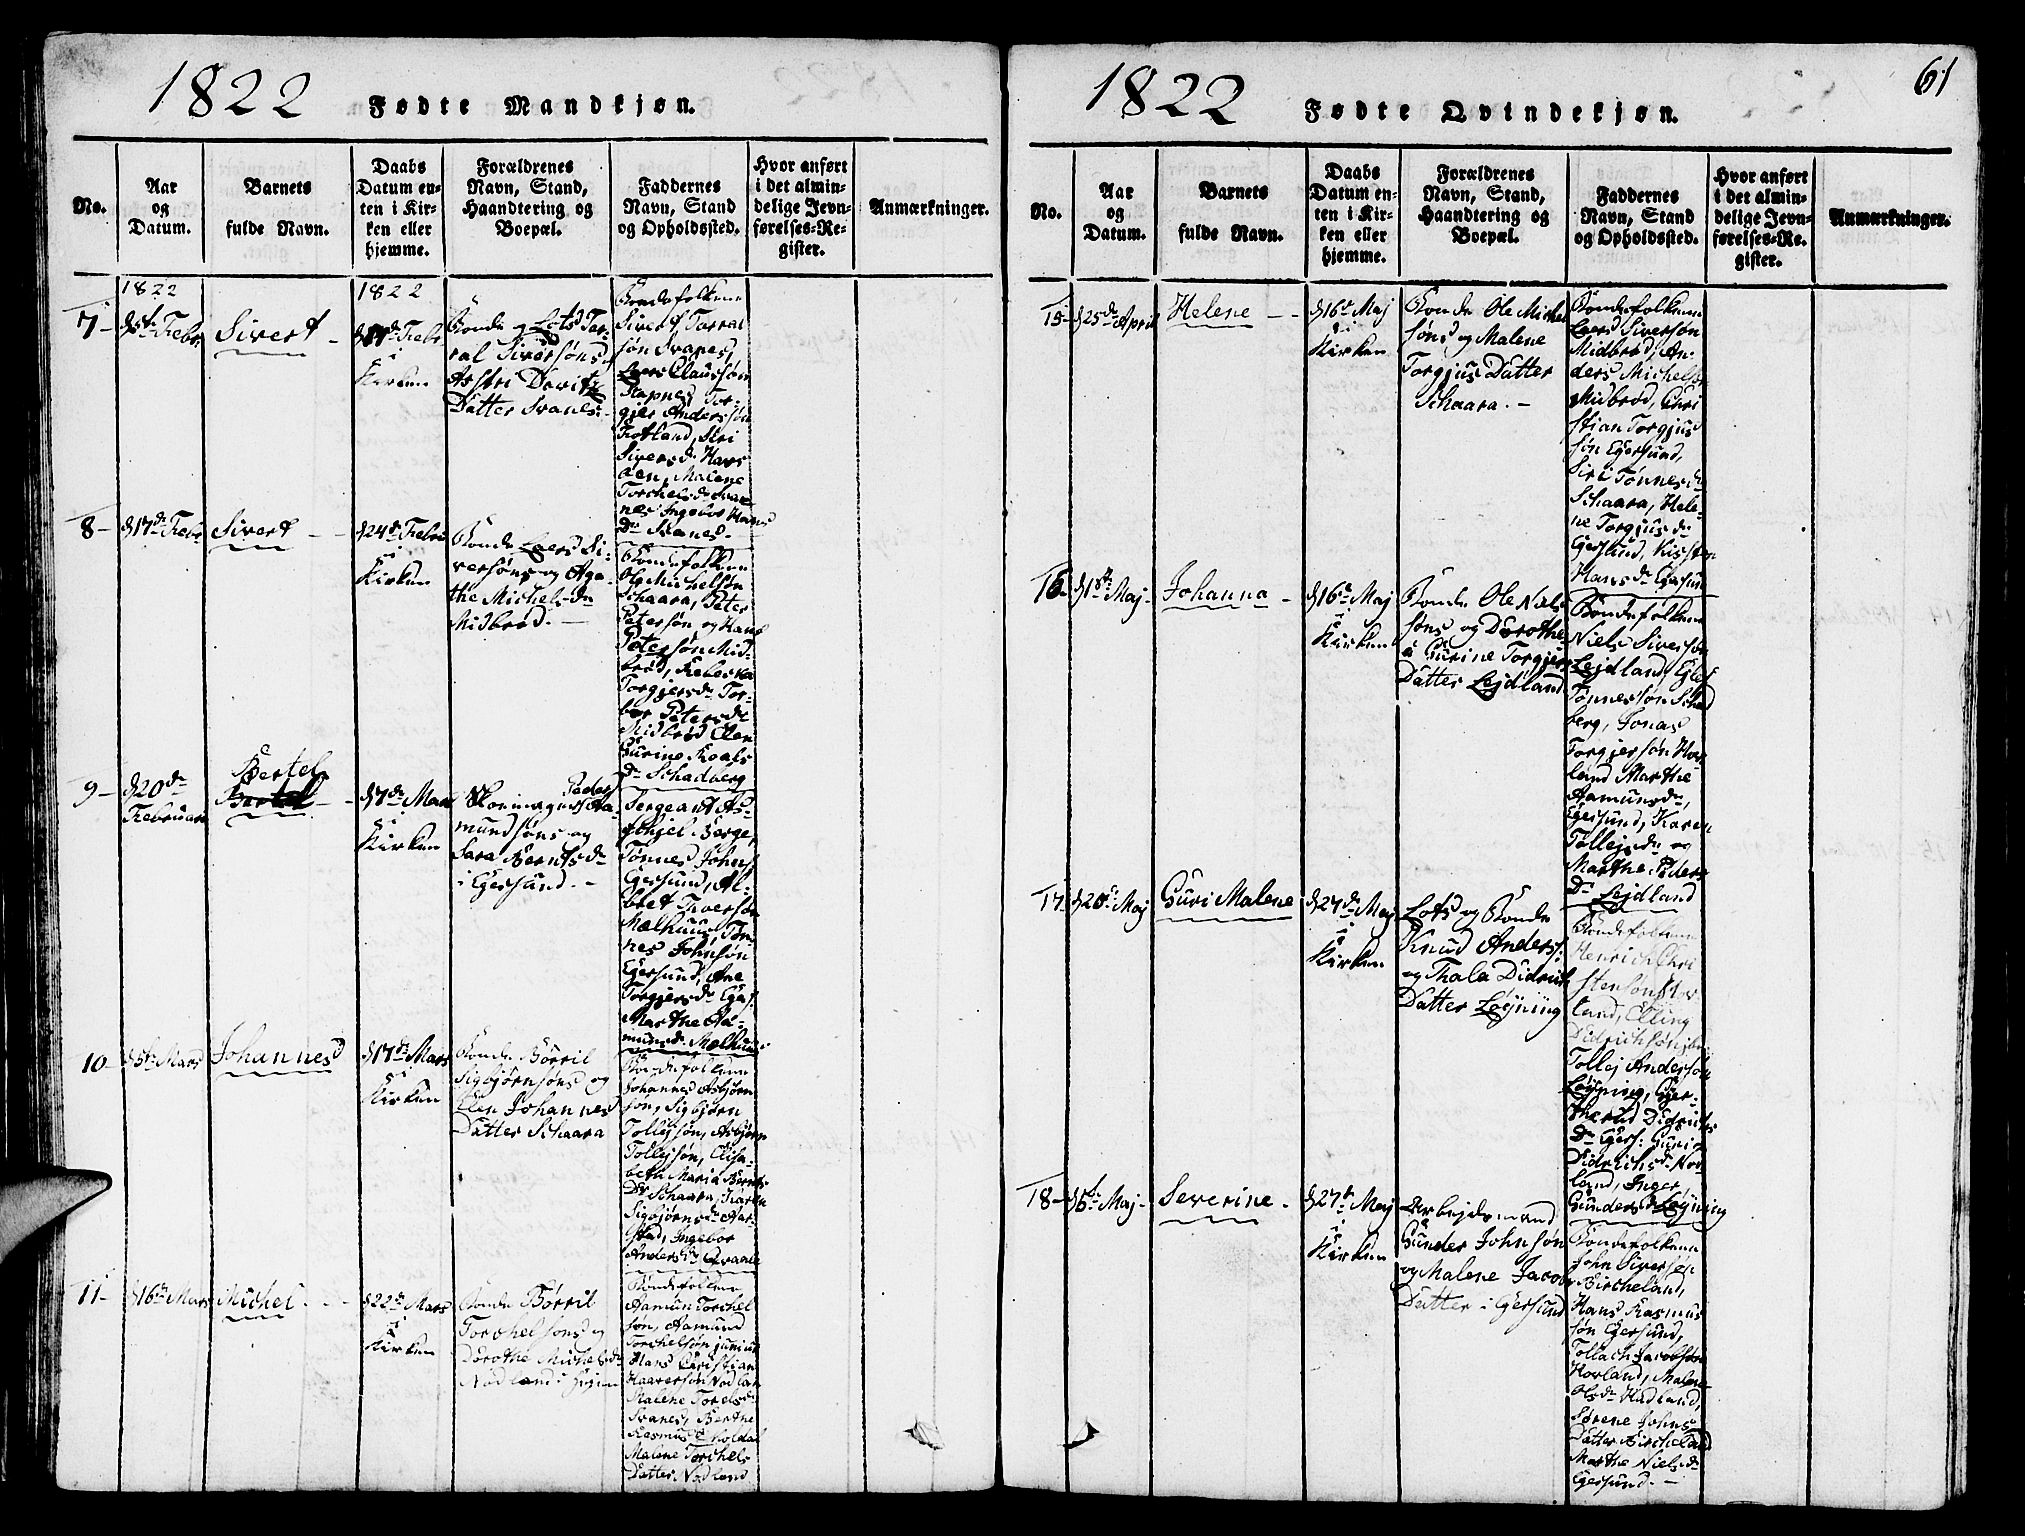 1822 Fødte Mandkjøn.
No.
Aar
og
Datum.
Barnets
fulde Navn.
Daabs
Datum en-
ten i Kir-
ken eller
hjemme.
Forældrenes
Navn, Stand,
Haandtering og
Boepæl.
Faddernes
Navn, Stand
og Opholdssted.
Hvor anført
i det almin-
delige Jevn-
førelses-Re-
gister.
Anmærkninger.
1822
1822
7-
Febr
Sivert
Febr
i
Kirken
Bonde og Lots Tar-
ral Siversøns og
Astri Davits
Datter Svanes.
Bondefolkene
Sivert Tarral
søn Svanes,
Laers Claussøn
Rapnes, Tor-
gjer Anderssøn
Siri
Siversdr.
Malene
Torchelsdr. Sva-
nes Ingebor Hans
Dr. Svanes.
8-
d 17de Febr
Sivert
d 24de Febr
i
Kirken
Bonde Laers Si-
versøns og Aga-
the Michelsdr.
Midbrød.
Bondefolkene
Ole Michelsøn
Schaara, Peter
Petersøn og Hans
Petersøn Mid-
brød, Rebecka
Torgjersdr. Tor-
bor Petersdr.
Midbrød Elen
Gurine Roals
Dr. Schadberg
9-
d 20de
Februar
Bertel
d 7de Mars
i
Kirken
Peders
Aa-
mundsøns og
Sara Berntsdr.
i Egersund.
Sergeant As-
Berge,
Tønnes Johns.
Egersund, Al-
bret Iversøn
Mælhuus, Tøn-
nes Johnsøn
Egersund, Ane
Torgjersdr. Egers.
Marthe Aa-
mundsdr. Mælhuus
10-
d 5te Mars
Johannes
d 17de Mars
i
Kirken
Bonde Børril
Sigbjørnsøns og
Elen Johannes
Datter Schaara
Bondefolkene
Johannes Asbjørn
søn, Sigbjørn
Tollejsøn, Asbjørn
Tollejsøn, Elisa-
beth Maria Bernts
Dr. Schaara, Karen
Sigbjørnsdr. Aar-
stad, Ingebor
Andersdr. Qvaale
11-
d 16de Mars
Michel
d 22de Mars
i
Kirken
Bonde Børril
Torchelsøns og
Dorothe Michelsdr.
Nodland
Bondefolkene
Aamun Torchel
søn, Aamund
Torchelsøn junior
Hans Christian
Haaversøn Nodland
Malene Torelsdr.
Svanes, Berthe
Rasmusdr.
Malene Torchels
Datter Nodland
1822 Fødte Qvindekjøn.
61
No.
Aar
og
Datum.
Barnets
fulde Navn.
Daabs
Datum en-
ten i Kir-
ken eller
hjemme.
Forældrenes
Navn, Stand,
Haandtering og
Boepæl.
Faddernes
Navn, Stand
og Opholdssted.
Hvor anført
i det almin-
delige Jevn-
førelses-Re-
gister.
Anmærkninger.
15-
d 25de April
Helene
d 16de Maj
i
Kirken
Bonde Ole Michel
søns og Malene
Torgjus Datter
Schaara.-
Bondefolkene
Laers Siversøn
Midbrød, An-
ders Michelsøn
Midbrød, Chri
stian Torgjus
søn Egersund,
Siri Tønnesdr.
Schaara, Hele-
ne Torgjusdr.
Egersund, Kisten
Hansdr. Egersund
16-
d 1ste Maj-
Johanna
d 16de Maj
i
Kirken
Bonde Ole Niels
søns og Dorothe-
a Gurine Torgjers
Datter Lejdland
Bondefolkene
Niels Siversøn
Lejdland,
Tønnessøn Schad
berg, Jonas
Torgjersøn Hov-
land Marthe
Aamunsdr,
Egersund, Karen
Tollejsdr. og
Marthe Peders
Dr. Lejdland
17-
d 20de Maj
Guri Malene
d 27de Maj
i
Kirken
Lots og Bonde
Knud Anders.
og Thala Didrich
Datter Løyning
Bondefolkene
Henrich Chri
stensøn
land, Elling
Didrichsøn
Tollej Andersøn
Løyning, Gjer-
therud Didrichs
Dr. Egers. Guri
Didrichsdr. Nod-
land, Inger
Gundersdr. Løyning
18-
Maj-
Severine
d 27de Maj
i
Kirken
Arbejdsmand
Gunder Johnsøn
og Malene Jacobs
Datter i Egersund
Bondefolkene
John Siversøn
Bircheland,
Hans Rasmus
søn Egersund,
Tollach Jacobsøn
Hovland, Malene
Olsdr. Hadland,
Sørene Johns
Datter Bircheland
Marthe Nielsdr.
Egersund.-